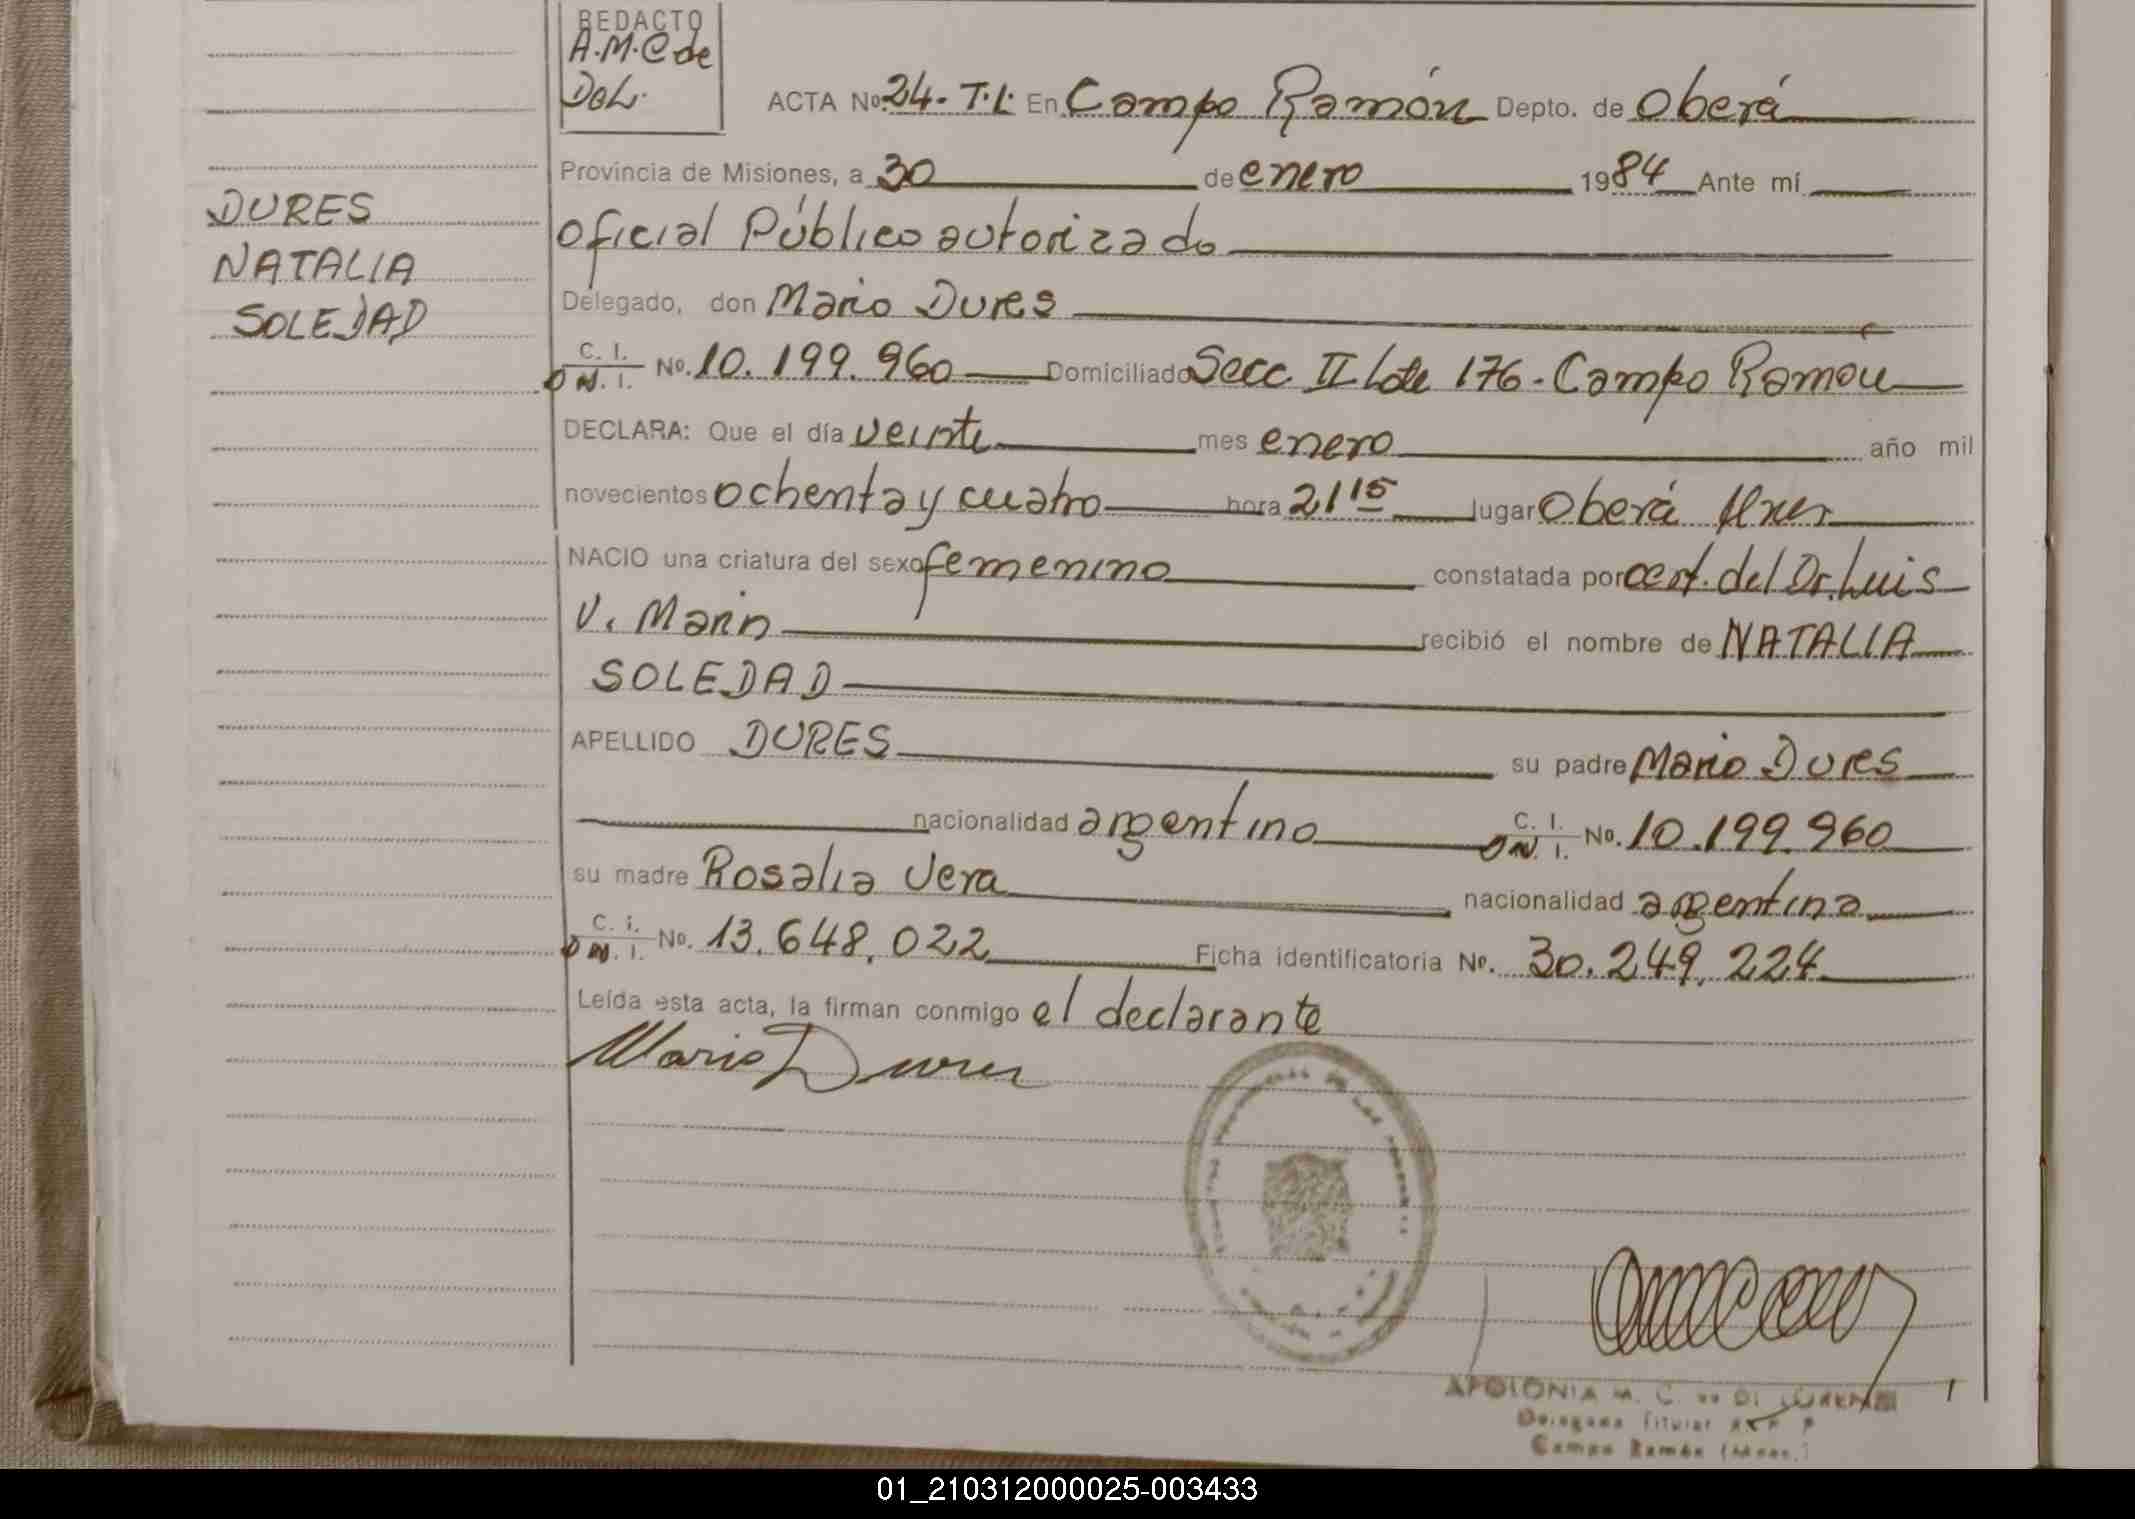 REDACTO
A.M.C de
DeL.
ACTA No. 24. T.L. En Campo Ramón Depto. de Oberá
Provincia de Misiones, a 30 de enero 1984 Ante mí
DURES
NATALIA
SOLEDAD
oficial Público autorizado
Delegado, don Mario Dures
C. I.
D N. I. No. 10.199.960 Domiciliado Secc II Lote 176 - Campo Ramón
DECLARA: Que el día veinte mes enero año mil
novecientos ochenta y cuatro hora 21 15 lugar Oberá Mnes
NACIO una criatura del sexo femenino constatada por cert. del Dr. Luis
V. Marin recibió el nombre de NATALIA
SOLEDAD
APELLIDO DURES su padre Mario Dures
nacionalidad argentino C. I.
D N. I. No. 10.199.960
su madre Rosalia Vera nacionalidad argentina
C. i.
D N. I. No. 13.648.022 Ficha identificatoria No. 30.249.224
Leída esta acta, la firman conmigo el declarante
Mario Dures
APOLONIA M. C. de DI LORENZO
Delegada Titular
Campo Ramón (Mnes.)
01_210312000025-003433